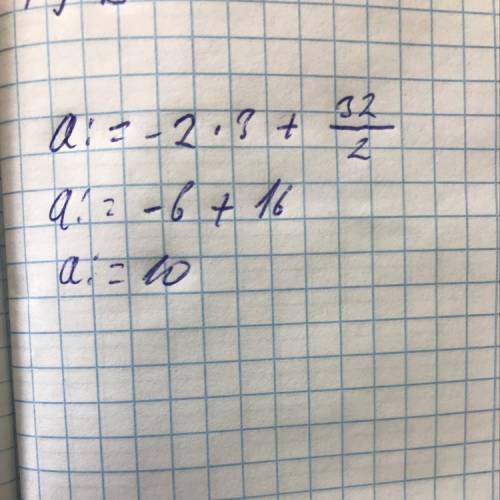 a := -2 · 3 + 32/2
a := -6 + 16
a := 10